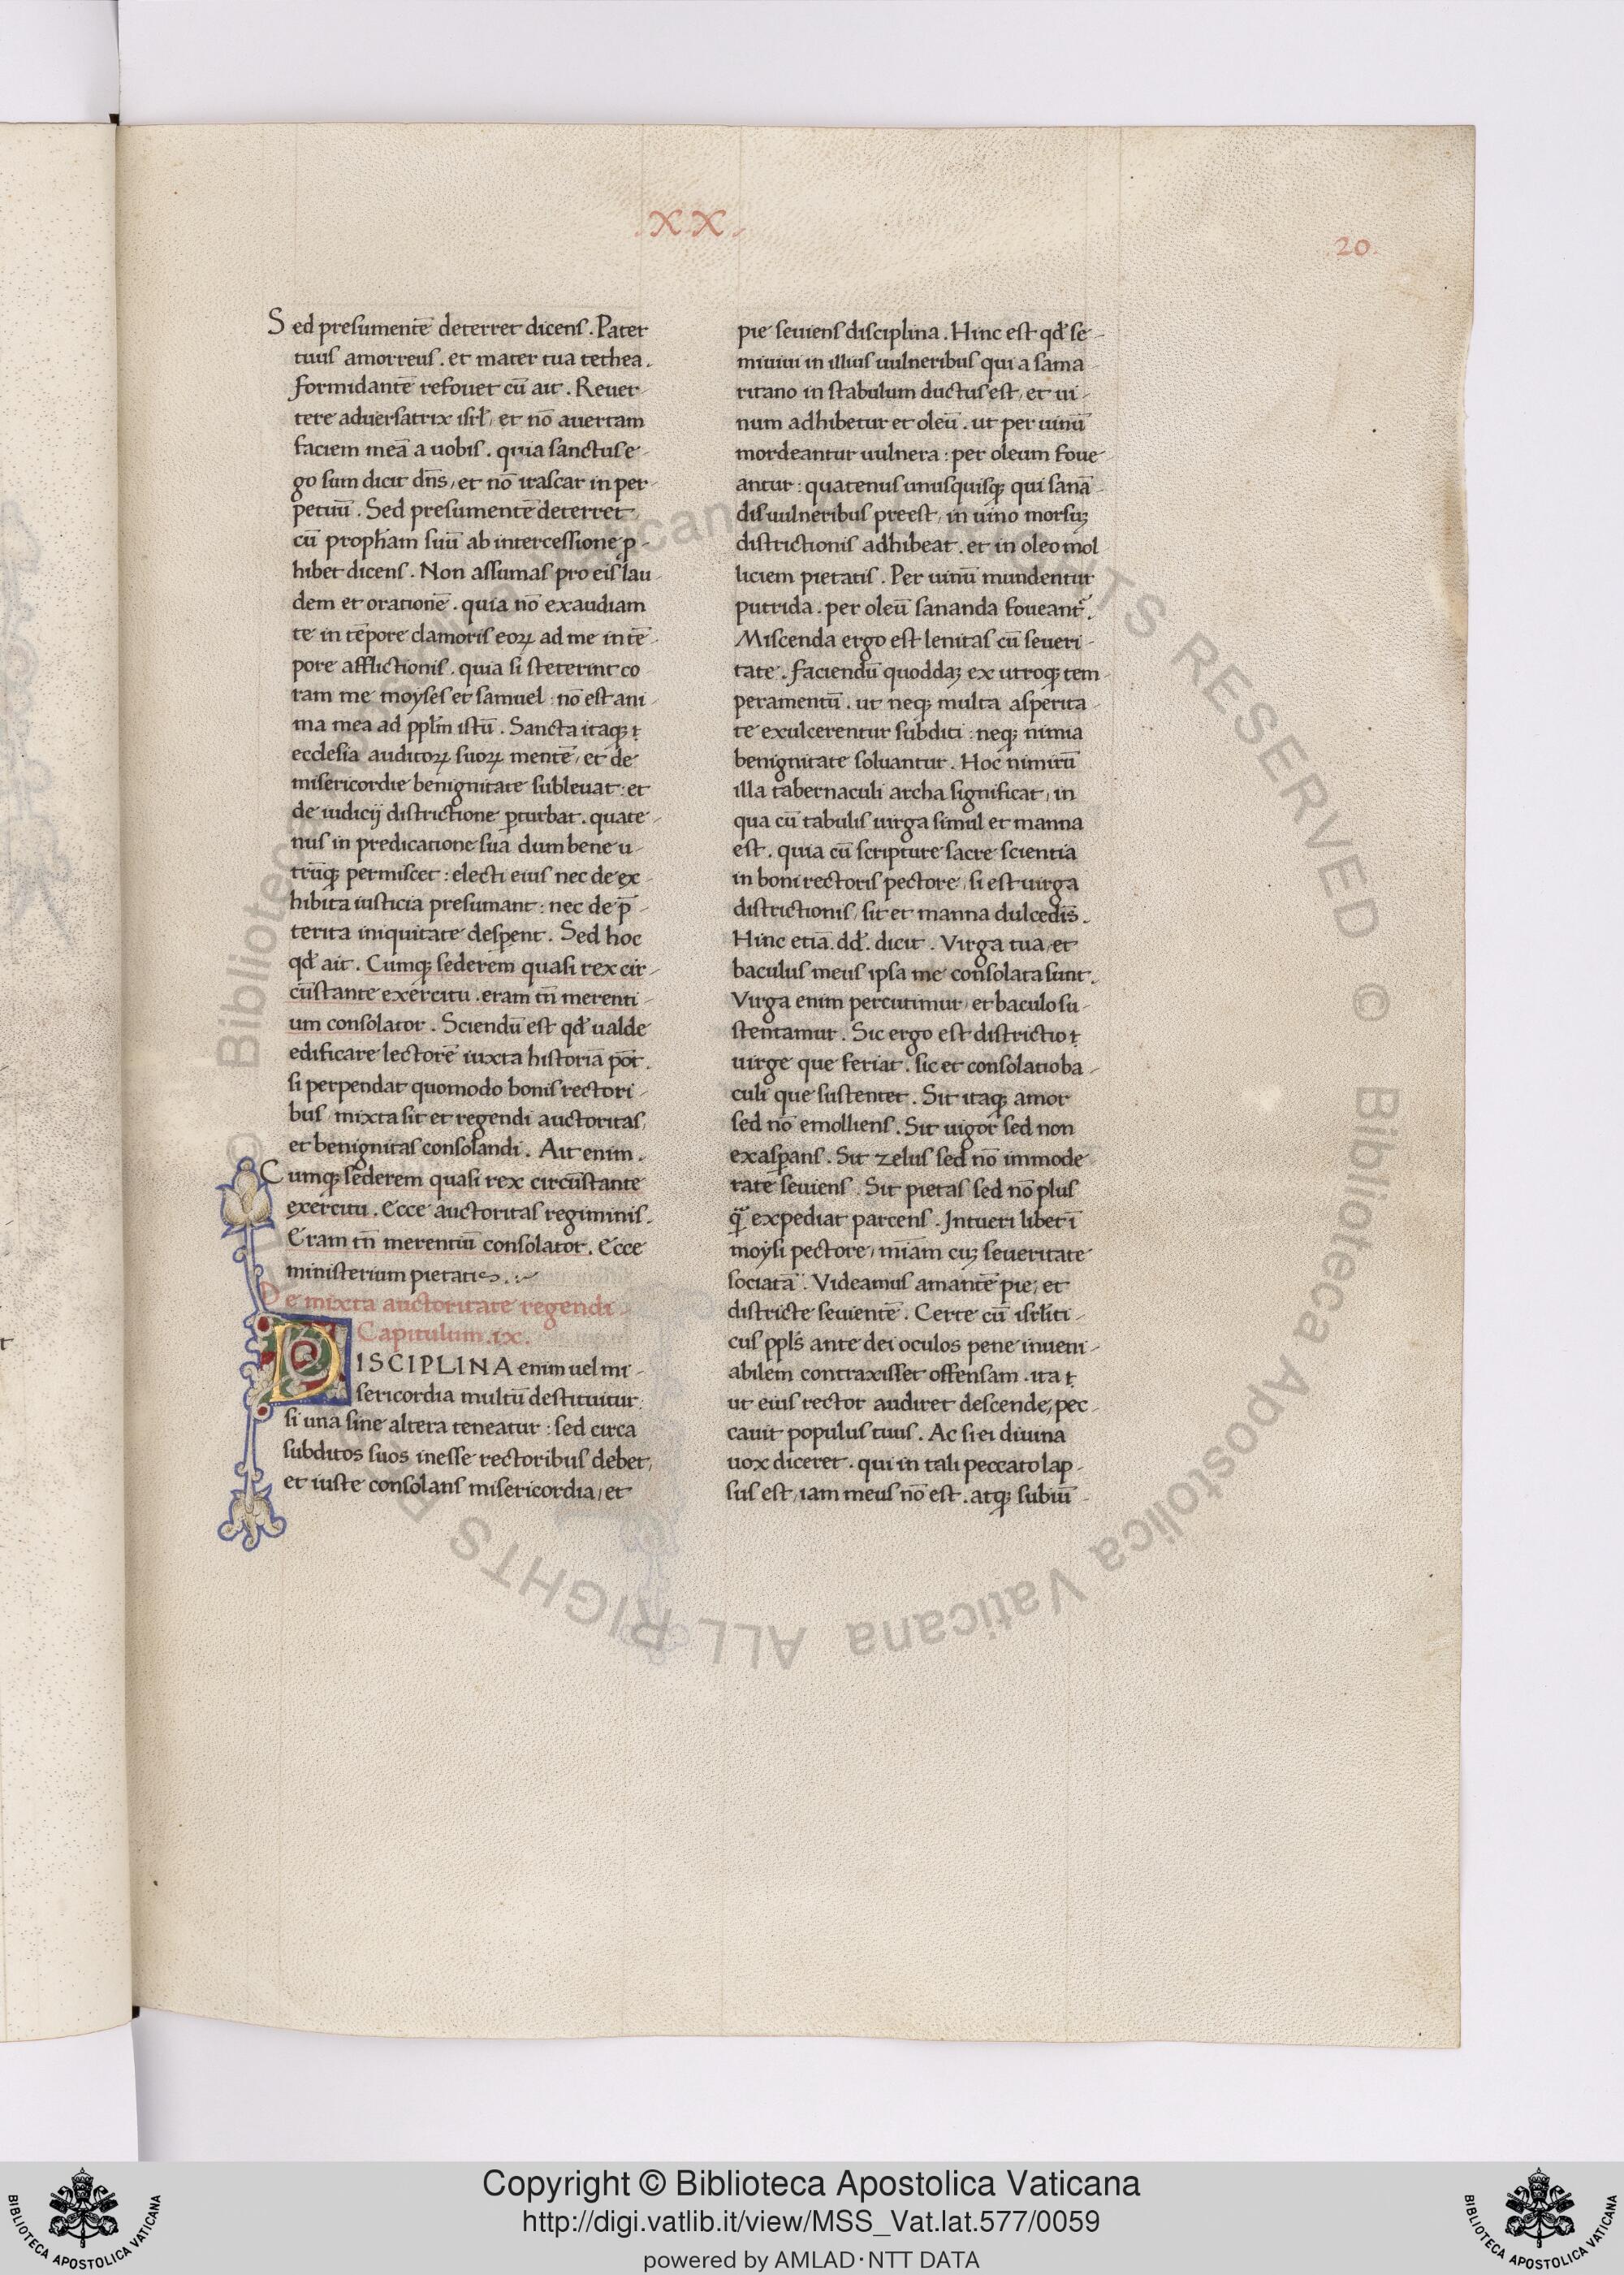 .XX.
.20.
Sed presumentē deterret dicens. Pater
tuus amorreus. et mater tua cethea.
formidantē refouet cū ait. Reuer-
tere aduersatrix isrł, et nō auertam
faciem meā a uobis. quia sanctus e-
go sum dicit dn̄s, et nō irascar in per-
petuū. Sed presumentē deterret,
cū propħam suū ab intercessione p-
hibet dicens. Non assumas pro eis lau-
dem et orationē. quia nō exaudiam
te in tēpore clamoris eoꝝ ad me in tē-
pore afflictionis. quia si steterint co-
ram me moyses et samuel: nō est ani-
ma mea ad pplm̄ istū. Sancta itaqꝫ
ecclesia auditoꝝ suoꝝ mentē, et de
misericordie benignitate subleuat: et
de iudicij districtione ꝑturbat. quate-
nus in predicatione sua dum bene u-
trūqꝫ permiscet: electi eius nec de ex-
hibita iusticia presumant: nec de p̄-
terita iniquitate desꝑent. Sed hoc
qđ ait. Cumqꝫ sederem quasi rex cir-
cūstante exercitu. eram tn̄ merenti-
um consolator. Sciendū est qđ ualde
edificare lectorē iuxta historiā pōt.
si perpendat quomodo bonis rectori-
bus, mixta sit et regendi auctoritas,
et benignitas consolandi. Ait enim.
Cumqꝫ sederem quasi rex circūstante
exercitu. Ecce auctoritas regiminis.
Eram tn̄ merentiū consolator. Ecce
ministerium pietatis.:~
De mixta auctoritate regendi.
Capitulum.ix.
DISCIPLINA enim uel mi-
sericordia multū destituitur:
si una sine altera teneatur: sed circa
subditos suos inesse rectoribus debet,
et iuste consolans misericordia, et
pie seuiens disciplina. Hinc est qđ se-
miuiui in illius uulneribus qui a sama-
ritano in stabulum ductus est, et ui-
num adhibetur et oleū. ut per uinū
mordeantur uulnera: per oleum foue-
antur: quatenus unusquisqꝫ qui sanā-
dis uulneribus preest, in uino morsuꝫ
districtionis adhibeat. et in oleo mol-
liciem pietatis. Per uinū mundentur
putrida. per oleū sananda foueant᷑.
Miscenda ergo est lenitas cū seueri-
tate. faciendū quoddaꝫ ex utroqꝫ tem-
peramentū. ut neqꝫ multa asperita-
te exulcerentur subditi: neqꝫ nimia
benignitate soluantur. Hoc nimirū
illa tabernaculi archa significat, in
qua cū tabulis uirga simul et manna
est. quia cū scripture sacre scientia
in boni rectoris pectore, si est uirga
districtionis, sit et manna dulcedīs.
Hinc etiā. dđ. dicit. Virga tua, et
baculus meus ipsa me consolata sunt.
Virga enim percutimur, et baculo su-
stentamur. Sic ergo est districtio
uirge que feriat. sic et consolatio ba-
culi que sustentet. Sit itaqꝫ amor
sed nō emolliens. Sit uigor sed non
exasꝑans. Sit zelus sed nō immode-
rate seuiens. Sit pietas sed nō plus
qᷓ expediat parcens. Intueri libet ī
moysi pectore, mīam cuꝫ seueritate
sociatā. Videamus amantē pie, et
districte seuientē. Certe cū isrłiti-
cus ppłs ante dei oculos pene inueni-
abilem contraxisset offensam. ita
ut eius rector audiret descende, pec-
cauit populus tuus. Ac si ei diuina
uox diceret. qui in tali peccato lap-
sus est, iam meus nō est. atqꝫ subiū-
© Biblioteca Apostolica Vaticana ALL RIGHTS RESERVED © Biblioteca Apostolica Vaticana ALL RIGHTS RESERVED
Copyright © Biblioteca Apostolica Vaticana
http://digi.vatlib.it/view/MSS_Vat.lat.577/0059
powered by AMLAD·NTT DATA
BIBLIOTECA APOSTOLICA VATICANA
BIBLIOTECA APOSTOLICA VATICANA